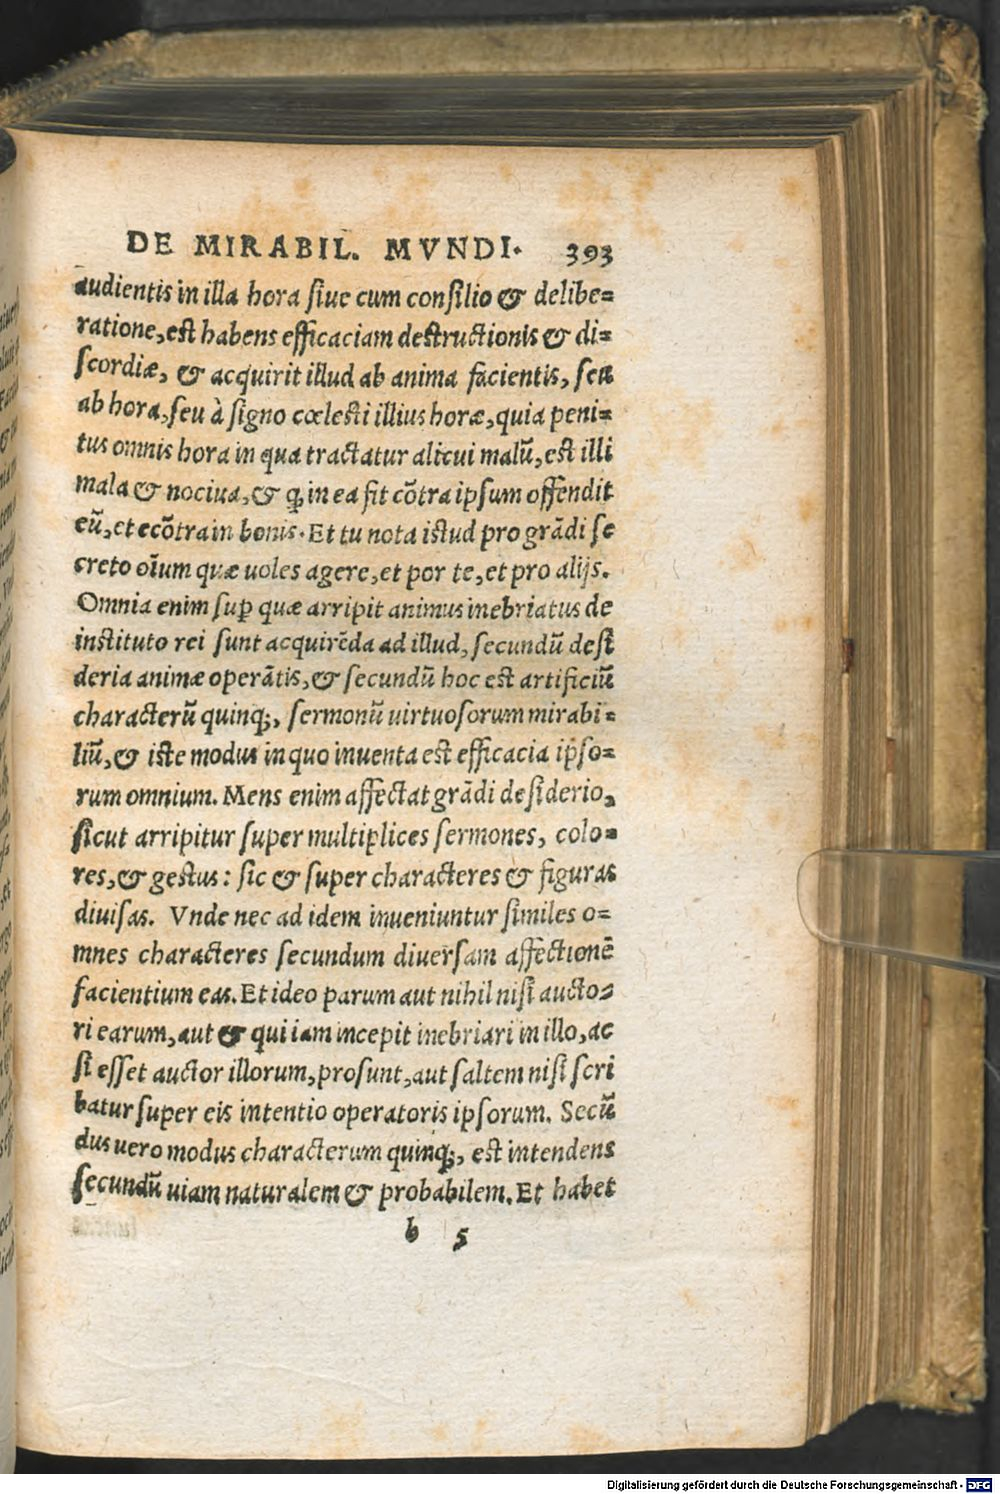 DE MIRABIL. MVNDI. 393
audientis in illa hora siue cum consilio & delibe=
ratione, est habens efficaciam destructionis & di=
scordiæ, & acquirit illud ab anima facientis, seu
ab hora, seu à signo cœlesti illius horæ, quia peni=
tus omnis hora in qua tractatur alicui malũ, est illi
mala & nociua, & q̃ in ea fit cõtra ipsum offendit
eũ, et ecõtra in bonis. Et tu nota istud pro grãdi se
creto oĩum quæ uoles agere, et por te, et pro alijs.
Omnia enim sup̱ quæ arripit animus inebriatus de
instituto rei sunt acquirẽda ad illud, secundũ desi
deria animæ operãtis, & secundũ hoc est artificiũ
characterũ quinq;, sermonũ uirtuosorum mirabi=
liũ, & iste modus in quo inuenta est efficacia ipso=
rum omnium. Mens enim affectat grãdi desiderio,
sicut arripitur super multiplices sermones, colo=
res, & gestus: sic & super characteres & figuras
diuisas. Vnde nec ad idem inueniuntur similes o=
mnes characteres secundum diuersam affectionẽ
facientium eas. Et ideo parum aut nihil nisi aucto=
ri earum, aut & qui iam incepit inebriari in illo, ac
si esset auctor illorum, prosunt, aut saltem nisi scri
batur super eis intentio operatoris ipsorum. Secũ
dus uero modus characterum quinq;, est intendens
secundũ uiam naturalem & probabilem. Et habet
b 5
Digitalisierung gefördert durch die Deutsche Forschungsgemeinschaft - DFG